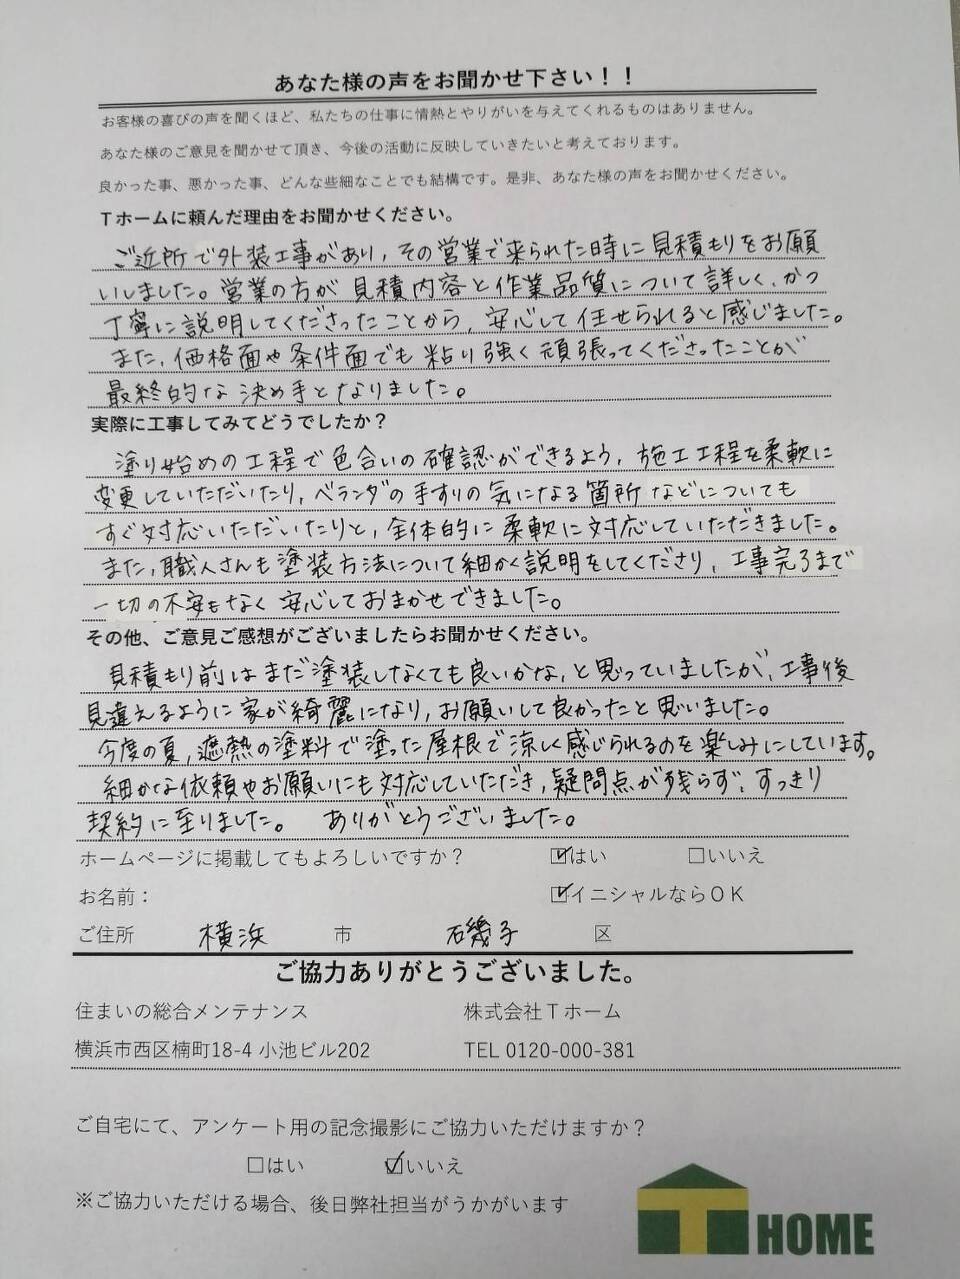 あなた様の声をお聞かせ下さい！！
お客様の喜びの声を聞くほど、私たちの仕事に情熱とやりがいを与えてくれるものはありません。
あなた様のご意見を聞かせて頂き、今後の活動に反映していきたいと考えております。
良かった事、悪かった事、どんな些細なことでも結構です。是非、あなた様の声をお聞かせください。
Ｔホームに頼んだ理由をお聞かせください。
ご近所で外装工事があり，その営業で来られた時に見積もりをお願
いしました。営業の方が見積内容と作業品質について詳しく、かつ
丁寧に説明してくださったことから，安心して任せられると感じました。
また，価格面や条件面でも粘り強く頑張ってくださったことが
最終的な決め手となりました。
実際に工事してみてどうでしたか？
塗り始めの工程で色合いの確認ができるよう，施工工程を柔軟に
変更していただいたり，ベランダの手すりの気になる箇所などについても
すぐ対応いただいたりと，全体的に柔軟に対応していただきました。
また，職人さんも塗装方法について細かく説明をしてくださり，工事完了まで
一切の不安もなく安心しておまかせできました。
その他、ご意見ご感想がございましたらお聞かせください。
見積もり前はまだ塗装しなくても良いかな，と思っていましたが，工事後
見違えるように家が綺麗になり，お願いして良かったと思いました。
今度の夏，遮熱の塗料で塗った屋根で涼しく感じられるのを楽しみにしています。
細かな依頼やお願いにも対応していただき，疑問点が残らず，すっきり
契約に至りました。 ありがとうございました。
ホームページに掲載してもよろしいですか？ ☑はい □いいえ
お名前： ☑イニシャルならＯＫ
ご住所 横浜 市 磯子 区
ご協力ありがとうございました。
住まいの総合メンテナンス 株式会社Ｔホーム
横浜市西区楠町18-4 小池ビル202 TEL 0120-000-381
ご自宅にて、アンケート用の記念撮影にご協力いただけますか？
□はい ☑いいえ
※ご協力いただける場合、後日弊社担当がうかがいます
T HOME